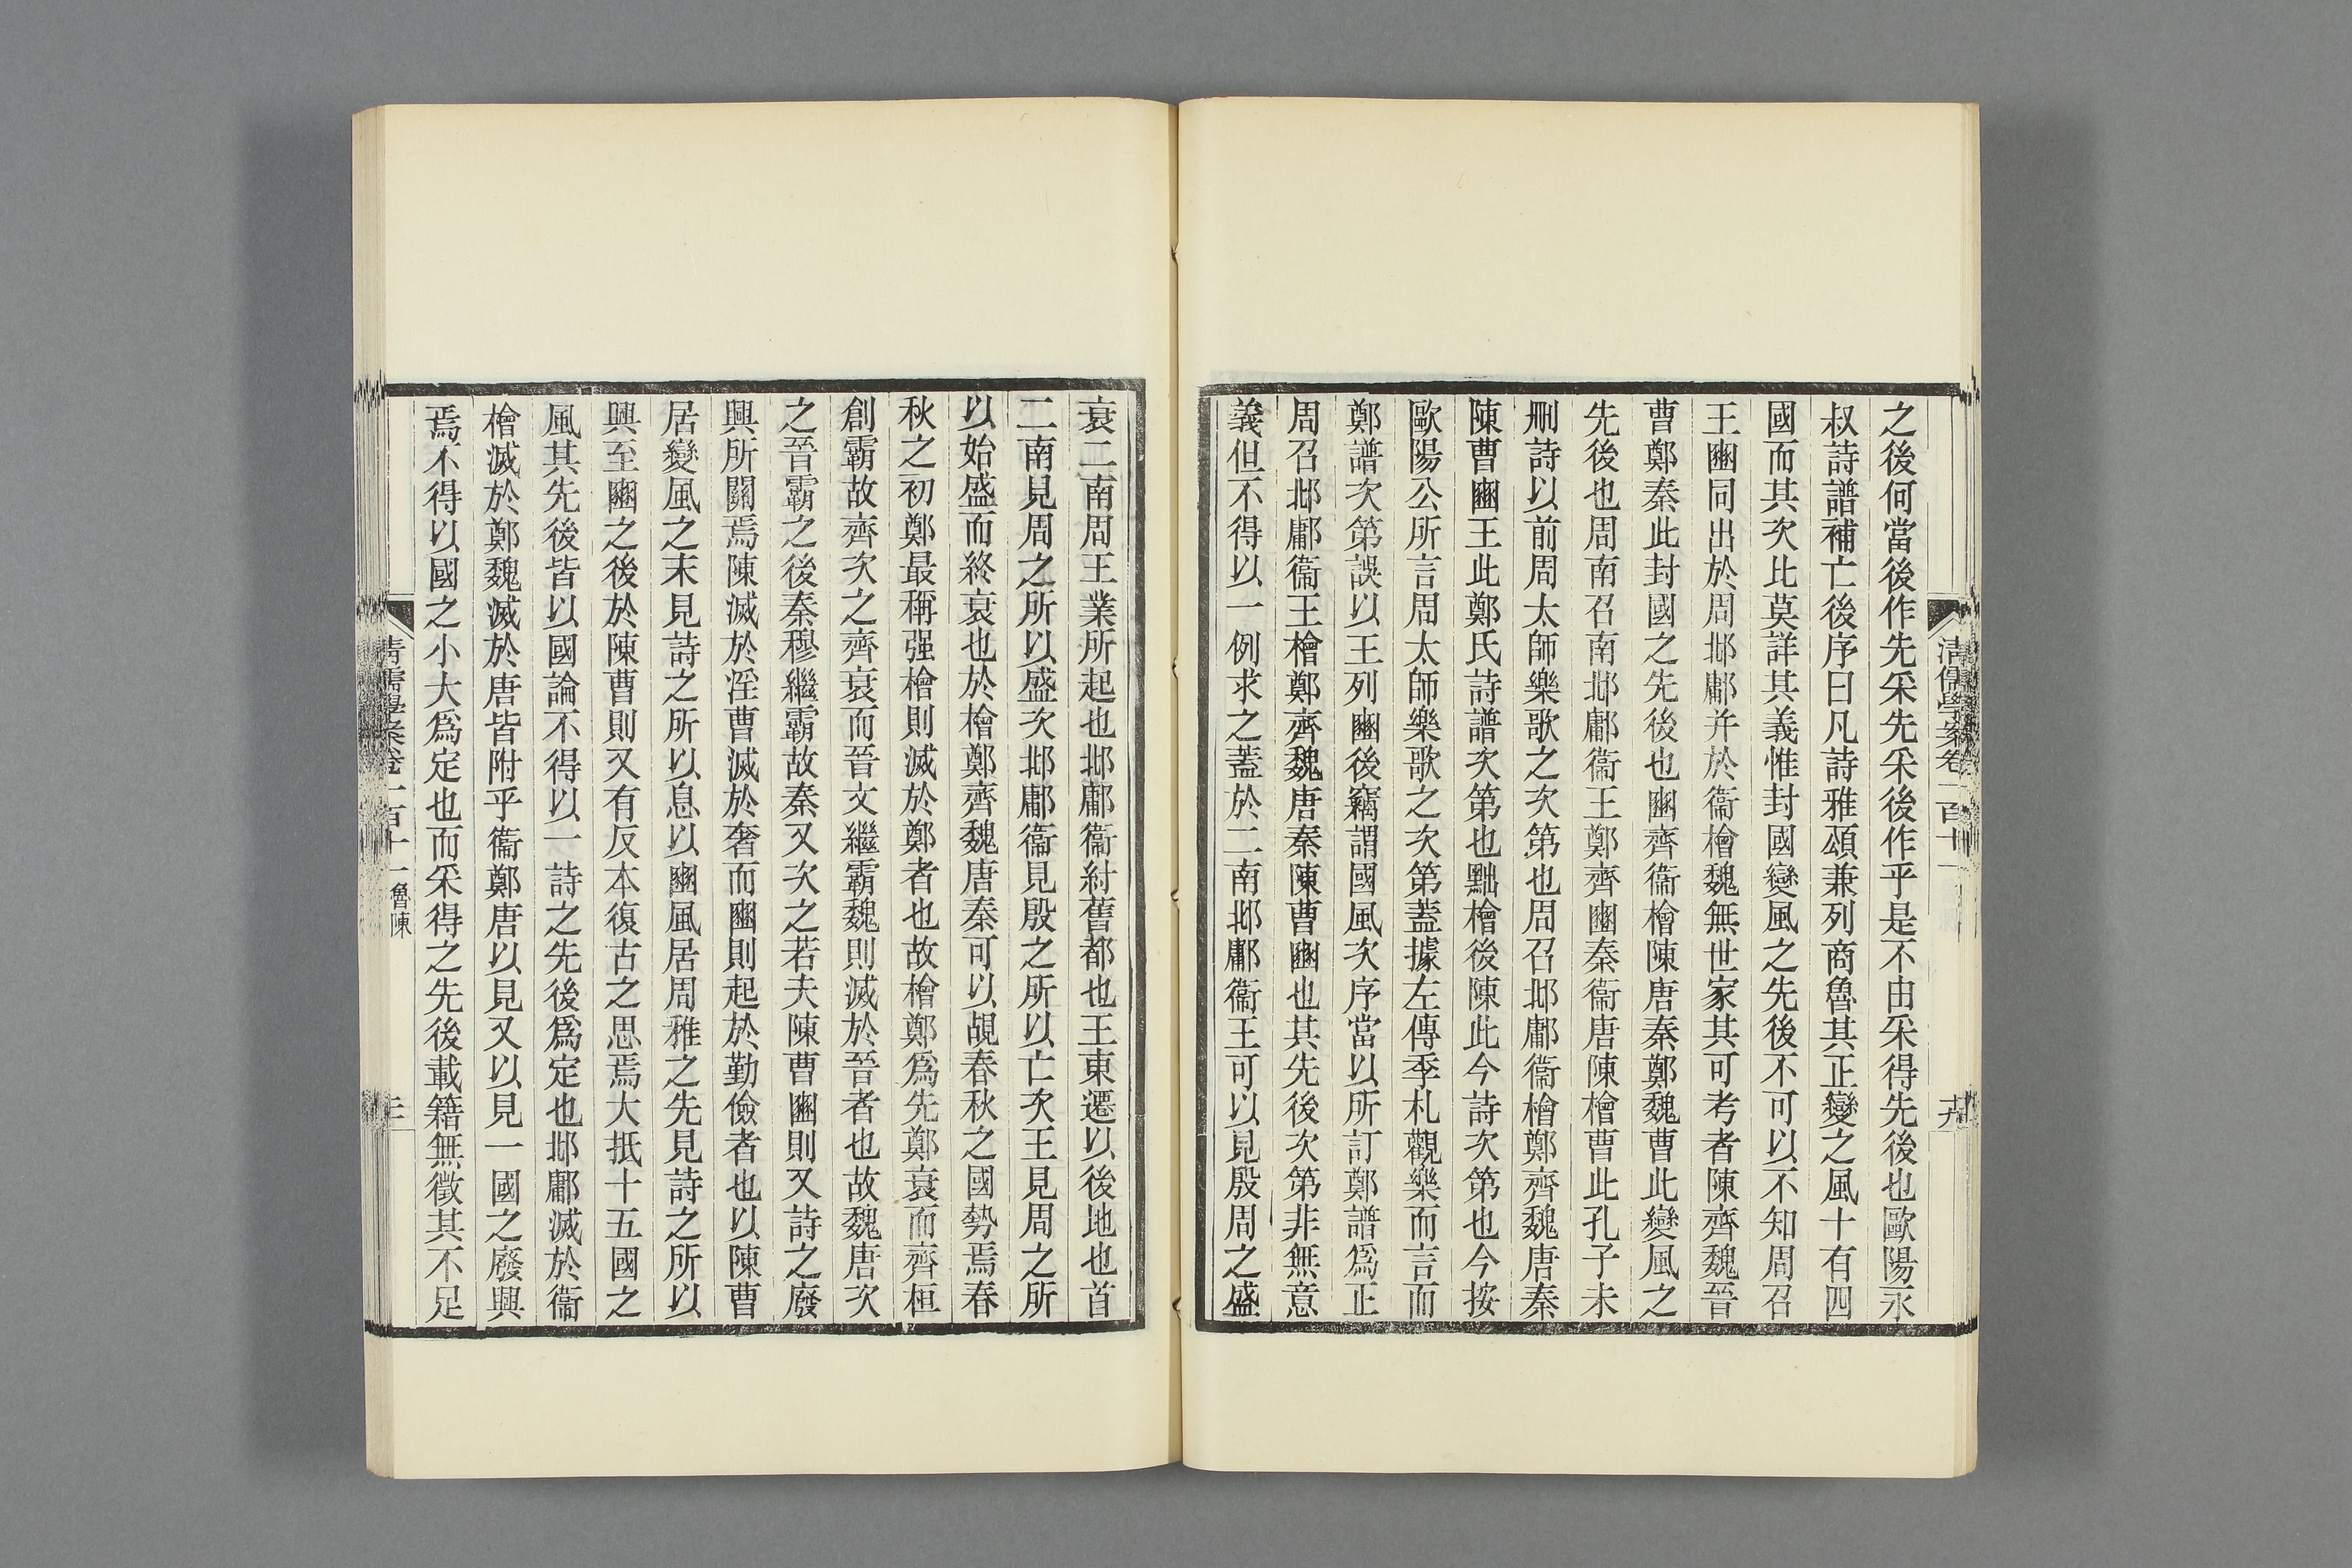 之後何當後作先采先采後作乎是不由采得先後也歐陽永
叔詩譜補亡後序曰凡詩雅頌兼列商魯其正變之風十有四
國而其次比莫詳其義惟封國變風之先後不可以不知周召
王豳同出於周邶鄘并於衞檜魏無世家其可考者陳齊魏晉
曹鄭秦此封國之先後也豳齊衞檜陳唐秦鄭魏曹此變風之
先後也周南召南邶鄘衞王鄭齊豳秦衞唐陳檜曹此孔子未
刪詩以前周太師樂歌之次第也周召邶鄘衞檜鄭齊魏唐秦
陳曹豳王此鄭氏詩譜次第也黜檜後陳此今詩次第也今按
歐陽公所言周太師樂歌之次第蓋據左傳季札觀樂而言而
鄭譜次第誤以王列豳後竊謂國風次序當以所訂鄭譜爲正
周召邶鄘衞王檜鄭齊魏唐秦陳曹豳也其先後次第非無意
義但不得以一例求之蓋於二南邶鄘衞王可以見殷周之盛
清儒學案卷一百十一
衰二南周王業所起也邶鄘衞紂舊都也王東遷以後地也首
二南見周之所以盛次邶鄘衞見殷之所以亡次王見周之所
以始盛而終衰也於檜鄭齊魏唐秦可以覘春秋之國勢焉春
秋之初鄭最稱强檜則滅於鄭者也故檜鄭爲先鄭衰而齊桓
創霸故齊次之齊衰而晉文繼霸魏則滅於晉者也故魏唐次
之晉霸之後秦穆繼霸故秦又次之若夫陳曹豳則又詩之廢
興所關焉陳滅於淫曹滅於奢而豳則起於勤儉者也以陳曹
居變風之末見詩之所以息以豳風居周雅之先見詩之所以
興至豳之後於陳曹則又有反本復古之思焉大抵十五國之
風其先後皆以國論不得以一詩之先後爲定也邶鄘滅於衞
檜滅於鄭魏滅於唐皆附乎衞鄭唐以見又以見一國之廢興
焉不得以國之小大爲定也而采得之先後載籍無徵其不足
清儒學案卷一百十一 魯陳